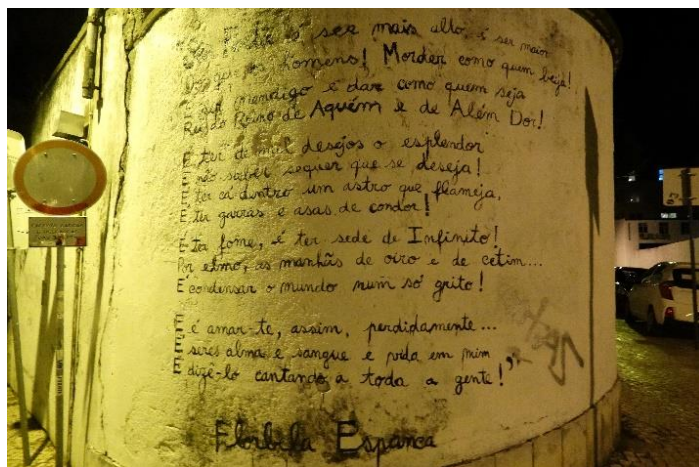 Ser Poeta é ser mais alto, é ser maior
Do que os homens! Morder como quem beija!
É ser mendigo e dar como quem seja
Rei do Reino de Aquém e de Além Dor!
É ter de mil desejos o esplendor
E não saber sequer que se deseja!
É ter cá dentro um astro que flameja,
É ter garras e asas de condor!
É ter fome, é ter sede de Infinito!
Por elmo, as manhãs de oiro e de cetim...
É condensar o mundo num só grito!
E é amar-te, assim, perdidamente...
É seres alma e sangue e vida em mim
E dizê-lo cantando a toda a gente!
Florbela Espanca